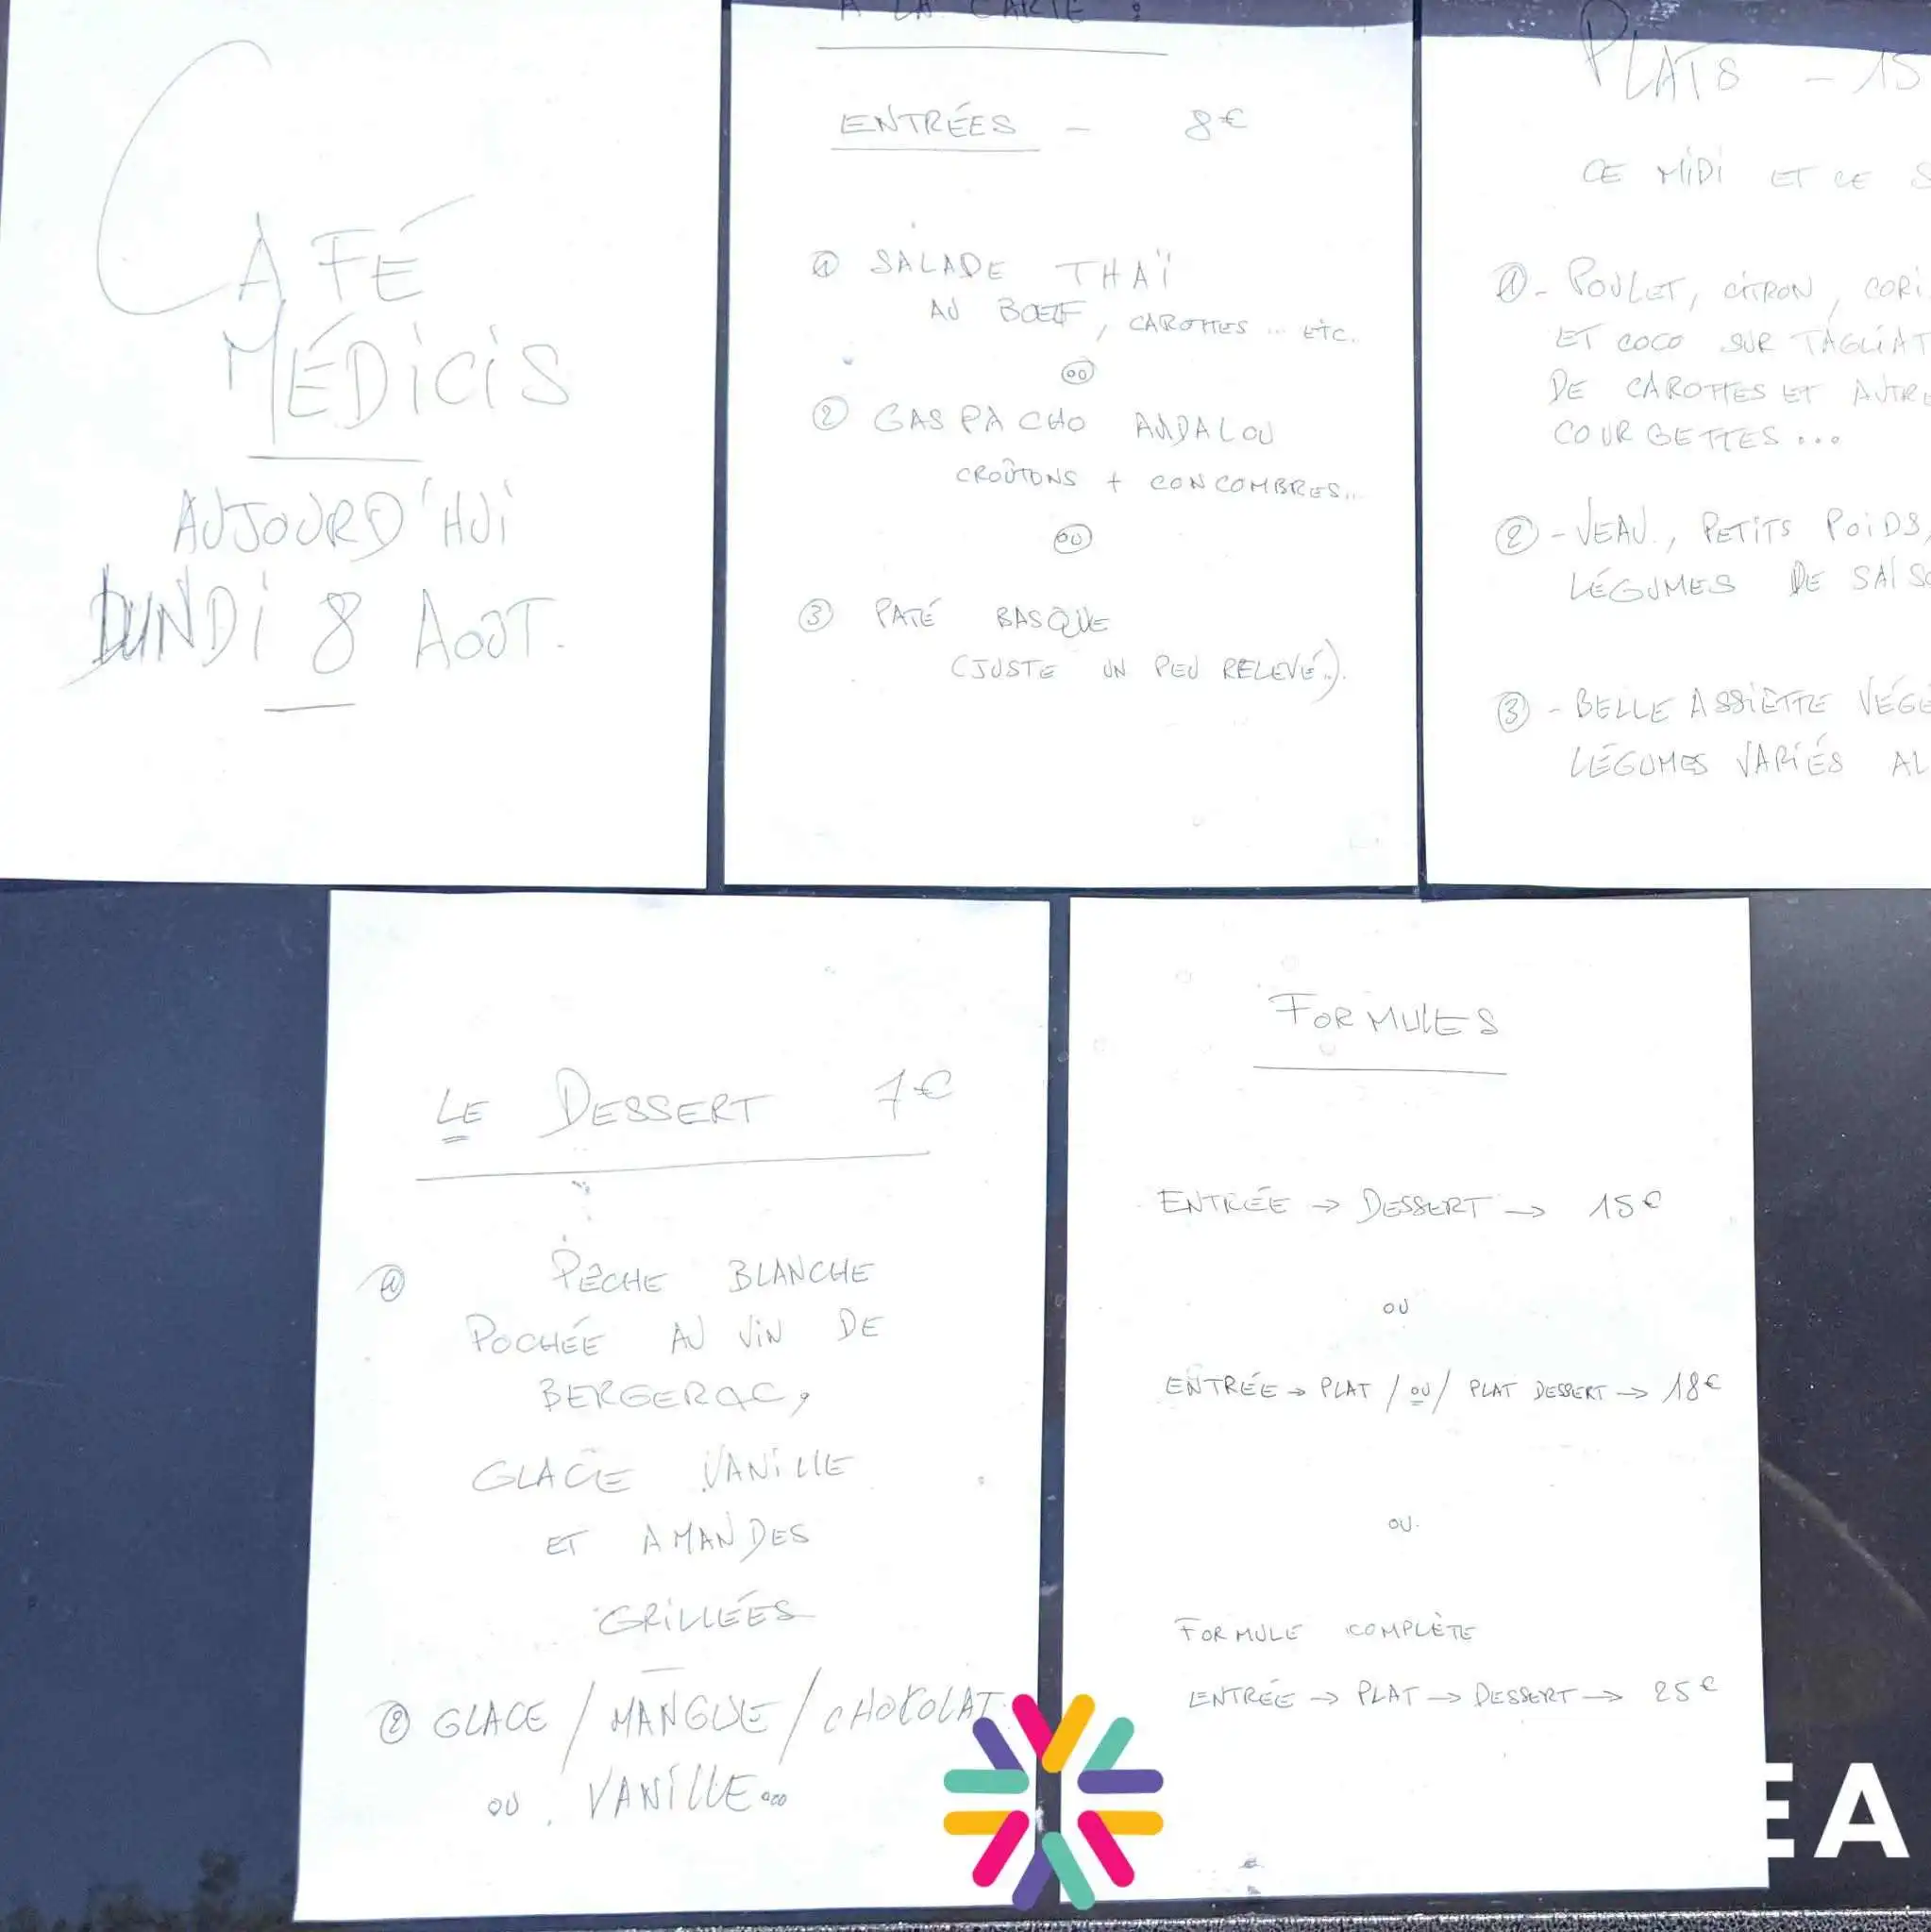 CAFÉ
MÉDICIS
AUJOURD'HUI
LUNDI 8 AOÛT.
A LA CARTE :
ENTRÉES - 8€
① SALADE THAÏ
AU BŒUF, CAROTTES ... ETC.
OU
② GASPACHO ANDALOU
CROÛTONS + CONCOMBRES...
OU
③ PATÉ BASQUE
(JUSTE UN PEU RELEVÉ..).
PLATS - 15
CE MIDI ET CE S
① - POULET, CITRON, CORI
ET COCO SUR TAGLIAT
DE CAROTTES ET AUTRE
COURGETTES...
② - VEAU., PETITS POIDS,
LÉGUMES DE SAISO
③ - BELLE ASSIETTE VÉGÉ
LÉGUMES VARIÉS AL
LE DESSERT 7€
① PÊCHE BLANCHE
POCHÉE AU VIN DE
BERGERAC,
GLACE VANILLE
ET AMANDES
GRILLÉES
② GLACE / MANGUE / CHOKOLAT
OU VANILLE...
FORMULES
ENTRÉE → DESSERT → 15€
OU
ENTRÉE → PLAT / OU / PLAT DESSERT → 18€
OU.
FORMULE COMPLÈTE
ENTRÉE → PLAT → DESSERT → 25€
EA